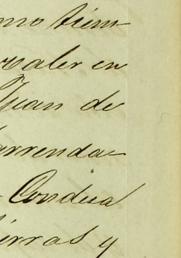 mo tiem
valer en
Juan de
arrenda-
Condeza
ierras y